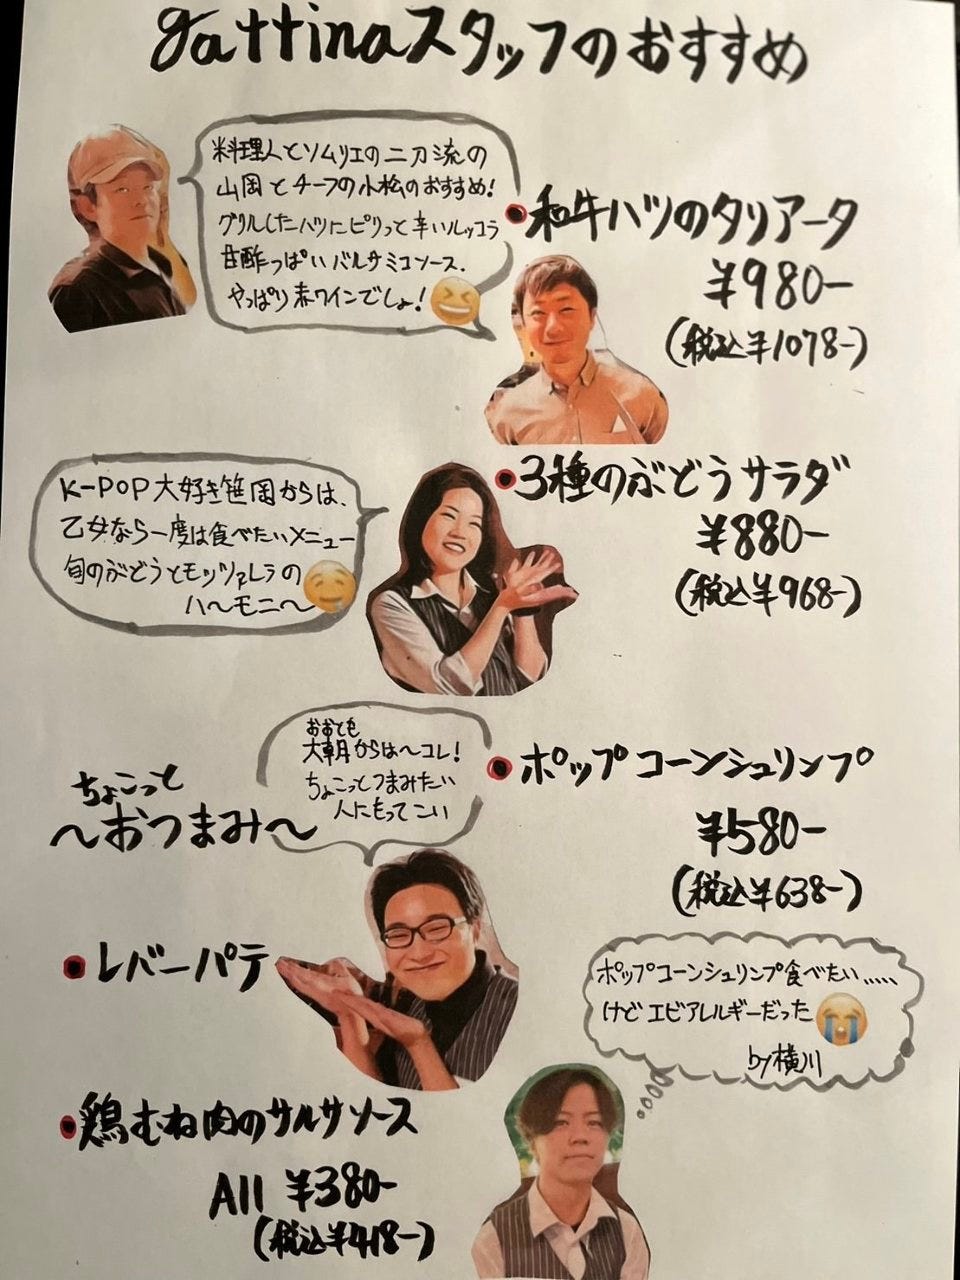 gattinaスタッフのおすすめ
料理人とソムリエの二刀流の
山岡とチーフの小松のおすすめ！
グリルしたハツにピリっと辛いルッコラ
甘酢っぱいバルサミコソース.
やっぱり赤ワインでしょ！
和牛ハツのタリアータ
¥980-
(税込¥1078-)
K-POP大好き笹岡からは、
乙女なら一度は食べたいメニュー
旬のぶどうとモッツァレラの
ハ〜モニ〜
3種のぶどうサラダ
¥880-
(税込¥968-)
おおとも
大朝からは〜コレ！
ちょこっとつまみたい
人にもってこい
ポップコーンシュリンプ
¥580-
(税込¥638-)
ちょこっと
〜おつまみ〜
レバーパテ
ポップコーンシュリンプ食べたい.....
けどエビアレルギーだった
by横川
鶏むね肉のサルサソース
All ¥380-
(税込¥418-)